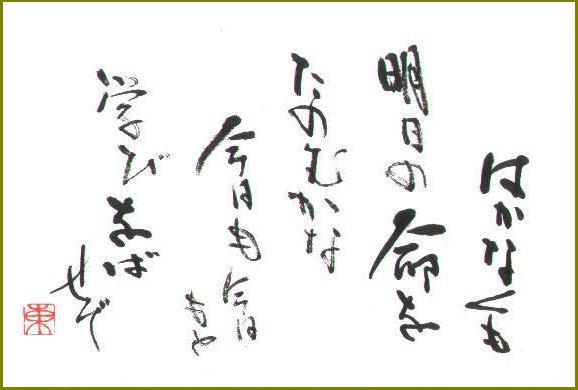 はかなくも
明日の命を
たのむかな
今日も今日
学びをば
せで
東